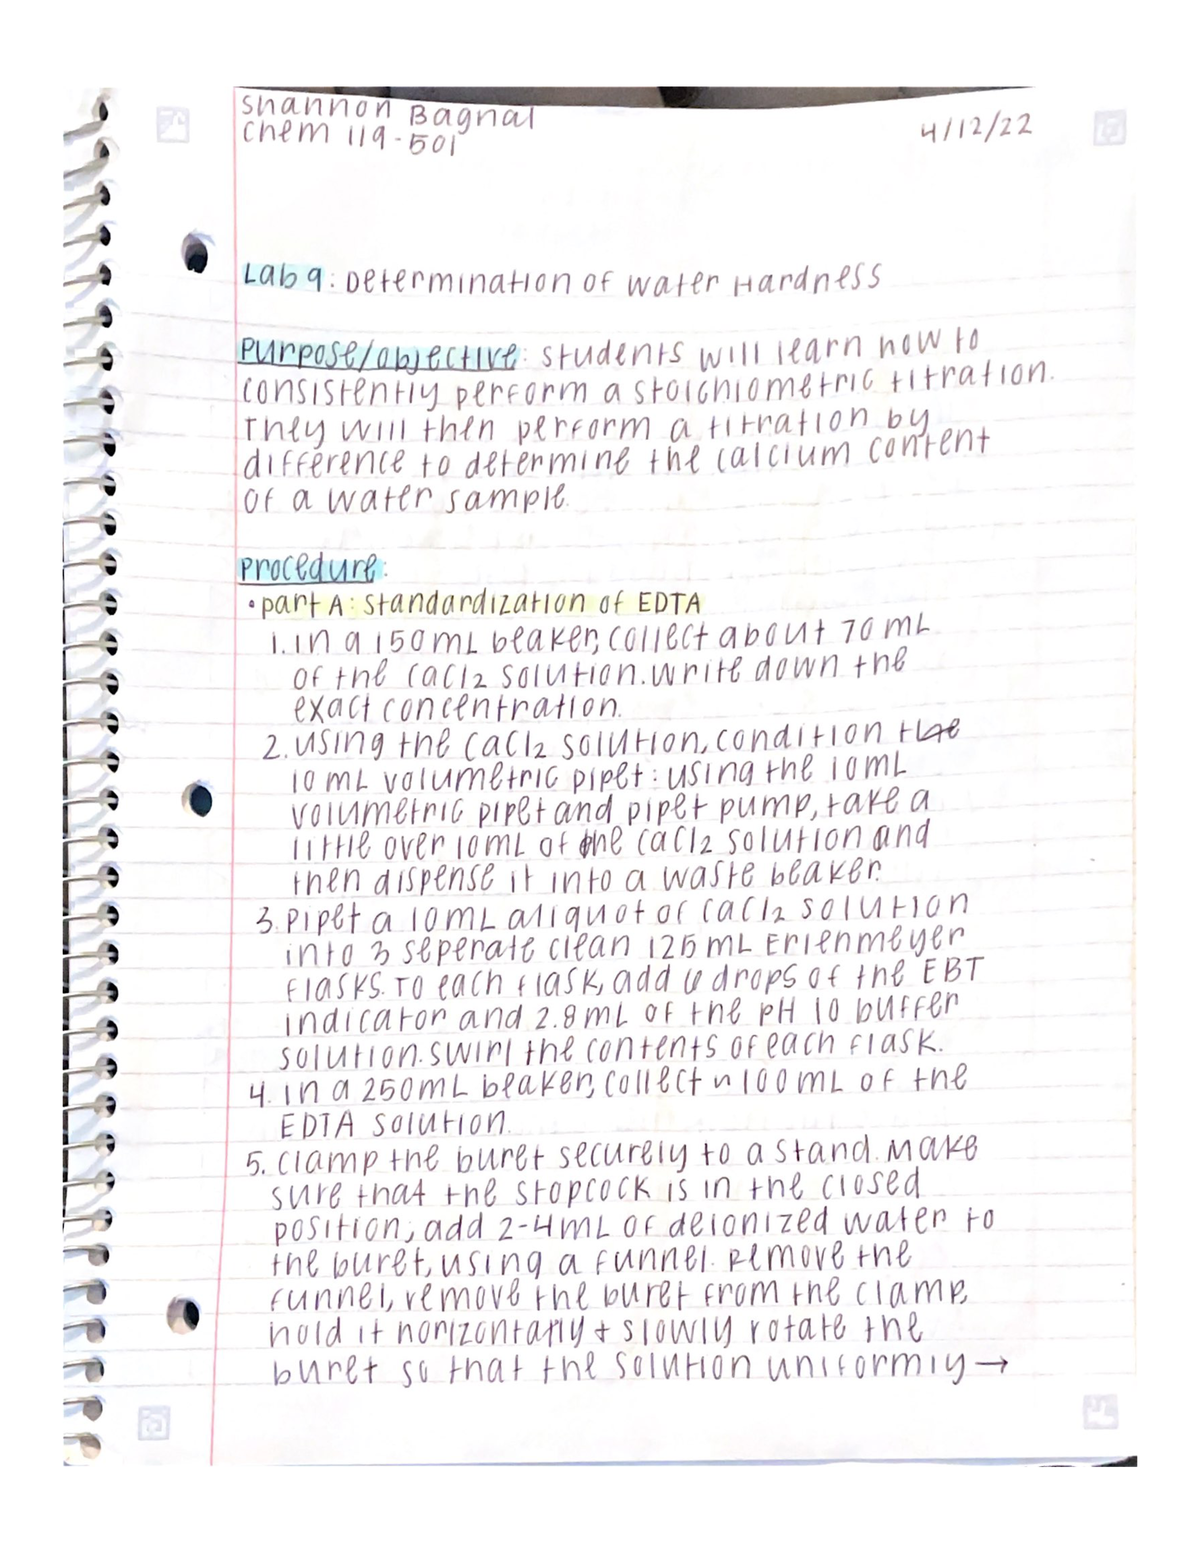 Shannon Bagnal
Chem 119-501
4/12/22
Lab 9: Determination of Water Hardness
Purpose/objective: students will learn how to
consistently perform a stoichiometric titration.
They will then perform a titration by
difference to determine the calcium content
of a water sample.
Procedure:
• part A: Standardization of EDTA
1. in a 150 mL beaker, collect about 70 mL
of the CaCl2 solution. Write down the
exact concentration.
2. using the CaCl2 solution, condition the
10 mL volumetric pipet: using the 10mL
volumetric pipet and pipet pump, take a
little over 10mL of the CaCl2 solution and
then dispense it into a waste beaker.
3. Pipet a 10mL aliquot of CaCl2 solution
into 3 seperate clean 125 mL Erlenmeyer
flasks. To each flask, add 6 drops of the EBT
indicator and 2.8 mL of the pH 10 buffer
solution. swirl the contents of each flask.
4. in a 250mL beaker, collect ~100mL of the
EDTA solution.
5. Clamp the buret securely to a stand. Make
sure that the stopcock is in the closed
position, add 2-4mL of deionized water to
the buret, using a funnel. Remove the
funnel, remove the buret from the clamp,
hold it horizontally + slowly rotate the
buret so that the solution uniformly →